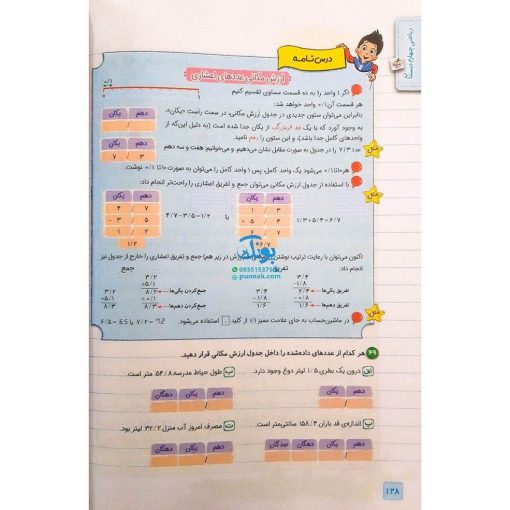 ریاضی چهارم دبستان
درس‌نامه
ارزش مکانی عددهای اعشاری
اگر ۱ واحد را به ده قسمت مساوی تقسیم کنیم
هر قسمت آن ۰/۱ واحد خواهد شد:
۰/۱
بنابراین می‌توان ستون جدیدی در جدول ارزش مکانی، در سمت راست «یکان»
به وجود آورد که با یک خط قرمزرنگ از یکان جدا شده است (به دلیل این‌که از
واحدهای کامل جدا باشد)، و این ستون را دهم نامید.
دهم یکان
/
مثال
عدد ۷/۳ را در جدول به صورت مقابل نشان می‌دهیم و می‌خوانیم هفت و سه دهم
دهم یکان
۳ / ۷
هر ۱۰ تا ۰/۱ می‌شود یک واحد کامل، پس ۱ واحد کامل را می‌توان به صورت ۱۰ تا ۰/۱ نوشت.
با استفاده از جدول ارزش مکانی می‌توان جمع و تفریق اعشاری را راحت‌تر انجام داد:
مثال
دهم یکان
۱ ۳
+ ۵ ۴
۶ ۷
۶/۷
۱/۳+۵/۴=۶/۷
یا
۴/۷-۳/۵=۱/۲
دهم یکان
۴ / ۷
- ۳ / ۵
۱ / ۲
۱/۲
اکنون می‌توان با رعایت ترتیب نوشتن جمع و تفریق اعشاری را خارج از جدول نیز
انجام داد:
پونک
09351537568
puonak.com
تفریق
جمع
۳/۴
-۱/۸
تفریق یکی‌ها
تفریق دهم‌ها
۳/۴
-۱/۸
۱/۶
۳/۲
+۵/۱
جمع‌کردن یکی‌ها
جمع‌کردن دهم‌ها
۸/۳
۳/۲
+۵/۱
۸/۳
مثال
در ماشین‌حساب به جای علامت ممیز (/) از کلید . استفاده می‌شود.
۴۹ هر کدام از عددهای داده‌شده را داخل جدول ارزش مکانی قرار دهید.
الف) درون یک بطری ۱/۵ لیتر دوغ وجود دارد.
دهم یکان
/
ب) طول حیاط مدرسه ۵۴/۸ متر است.
دهم یکان دهگان
/
پ) اندازه‌ی قد باران ۱۵۸/۴ سانتی‌متر است.
دهم یکان دهگان صدگان
/
ت) مصرف امروز آب منزل ۳۲/۲ لیتر بود.
دهم یکان دهگان
/
۱۲۸